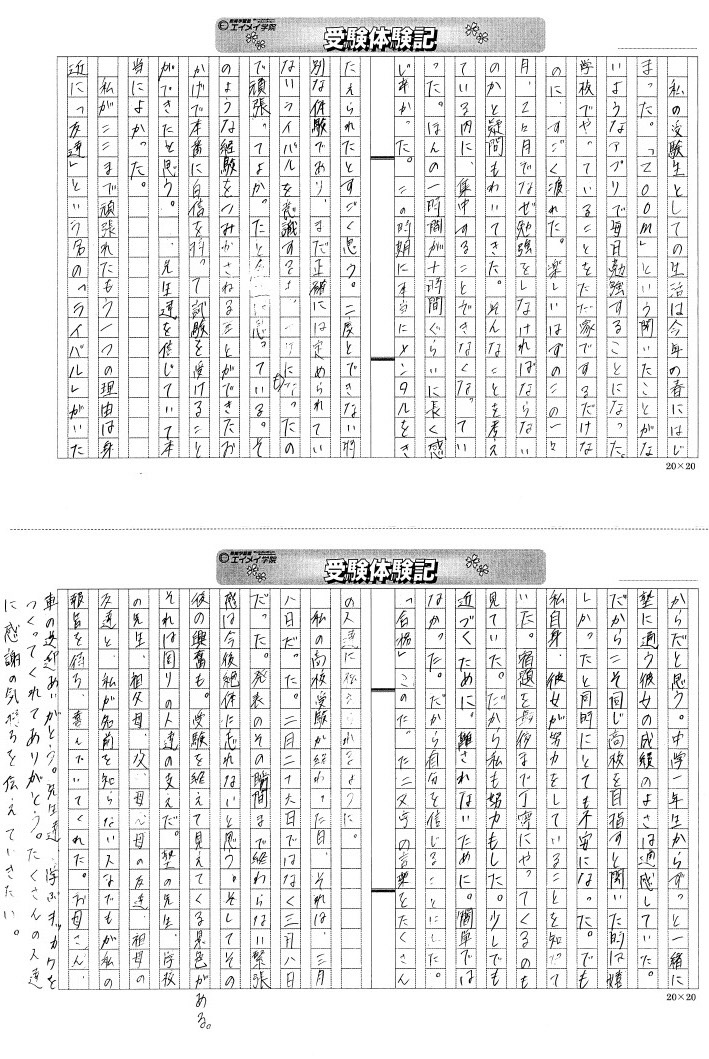 ©エイメイ学院
受験体験記
私の受験生としての生活は今年の春にはじ
まった。「200m」という聞いたことがな
いようなアプリで毎日勉強することになった。
学校でやっていることをただ家でするだけな
のに、すごく疲れた。楽しいはずのこの一々
月、2ヶ月でなぜ勉強をしなければならない
のかと疑問もわいてきた。そんなことを考え
ている内に、集中することもできなくなってい
った。ほんの一時間が十時間ぐらいに長く感
じ辛かった。この時期に本当にメンタルをき
たえられたとすごく思う。二度とできない特
別な体験であり、まだ正確には定められてい
ないライバルを意識するように、なったの
で頑張ってよかったと思っている。そ
のような経験をつみかさねることができたお
かげで本番に自信を持って試験を受けること
ができたと思う。先生達を信じていて本
当によかった。
私がここまで頑張れたもう一つの理由は身
近に「友達」という名の「ライバル」がいた
20×20
©エイメイ学院
受験体験記
からだと思う。中学一年生からずっと一緒に
塾に通う彼女の成績のよさは通感していた。
だからこそ同じ高校を目指すと聞いた時は嬉
しかったと同時にとても不安になった。でも
私自身、彼女が努力をしていることを知って
いた。宿題を毎回まで丁寧にやってくるのも
見ていた。だから私も努力もした。少しでも
近づくために。離されないために。簡単では
なかった。だから自分を信じることにした。
「合格」このたった二文字の言葉をたくさん
の人達に伝えられるように。
私の高校受験が終わった日、それは、三月
八日だった。二月二十六日ではなく三月八日
だった。発表のその瞬間まで終わらない緊張
感は今後絶体に忘れないと思う。そしてその
後の興奮も。受験を終えて見えてくる景色がある。
それは周りの人達の支えだ。塾の先生、学校
の先生、祖父母、父、母、母の友達、祖母の
友達と、私が名前を知らない人などもが私の
報告を待ち、喜んでいてくれた。お母さん、
車の送迎ありがとう。先生達、学ぶキッカケを
つくってくれてありがとう。たくさんの人達
に感謝の気持ちを伝えていきたい。
20×20